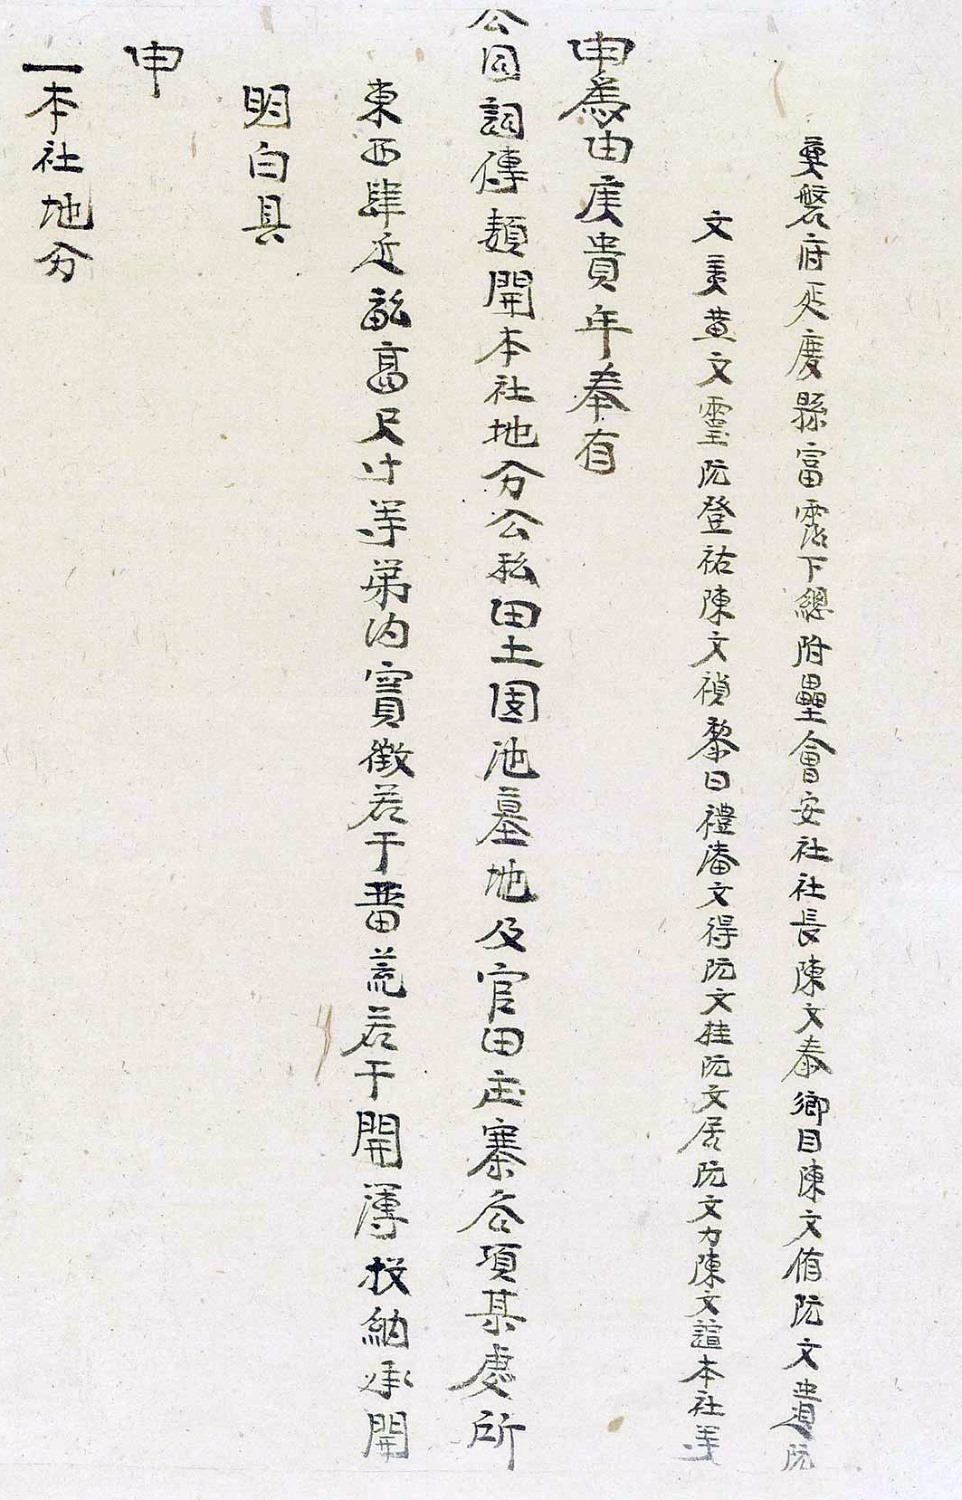 奠磐府延慶縣富霑下總附壘會安社社長陳文泰鄉目陳文侑阮文遺阮
文美黄文靈阮登祐陳文禎黎曰禮潘文得阮文挂阮文居阮文力陳文諠本社等
申為由庚貴年奉有
公同詞傳類開本社地分公私田土園池墓地及官田庄寨各項某處所
東西肆近畝高尺寸等第内實徵若干畨荒若干開薄投納承開
明白具
申
一本社地分